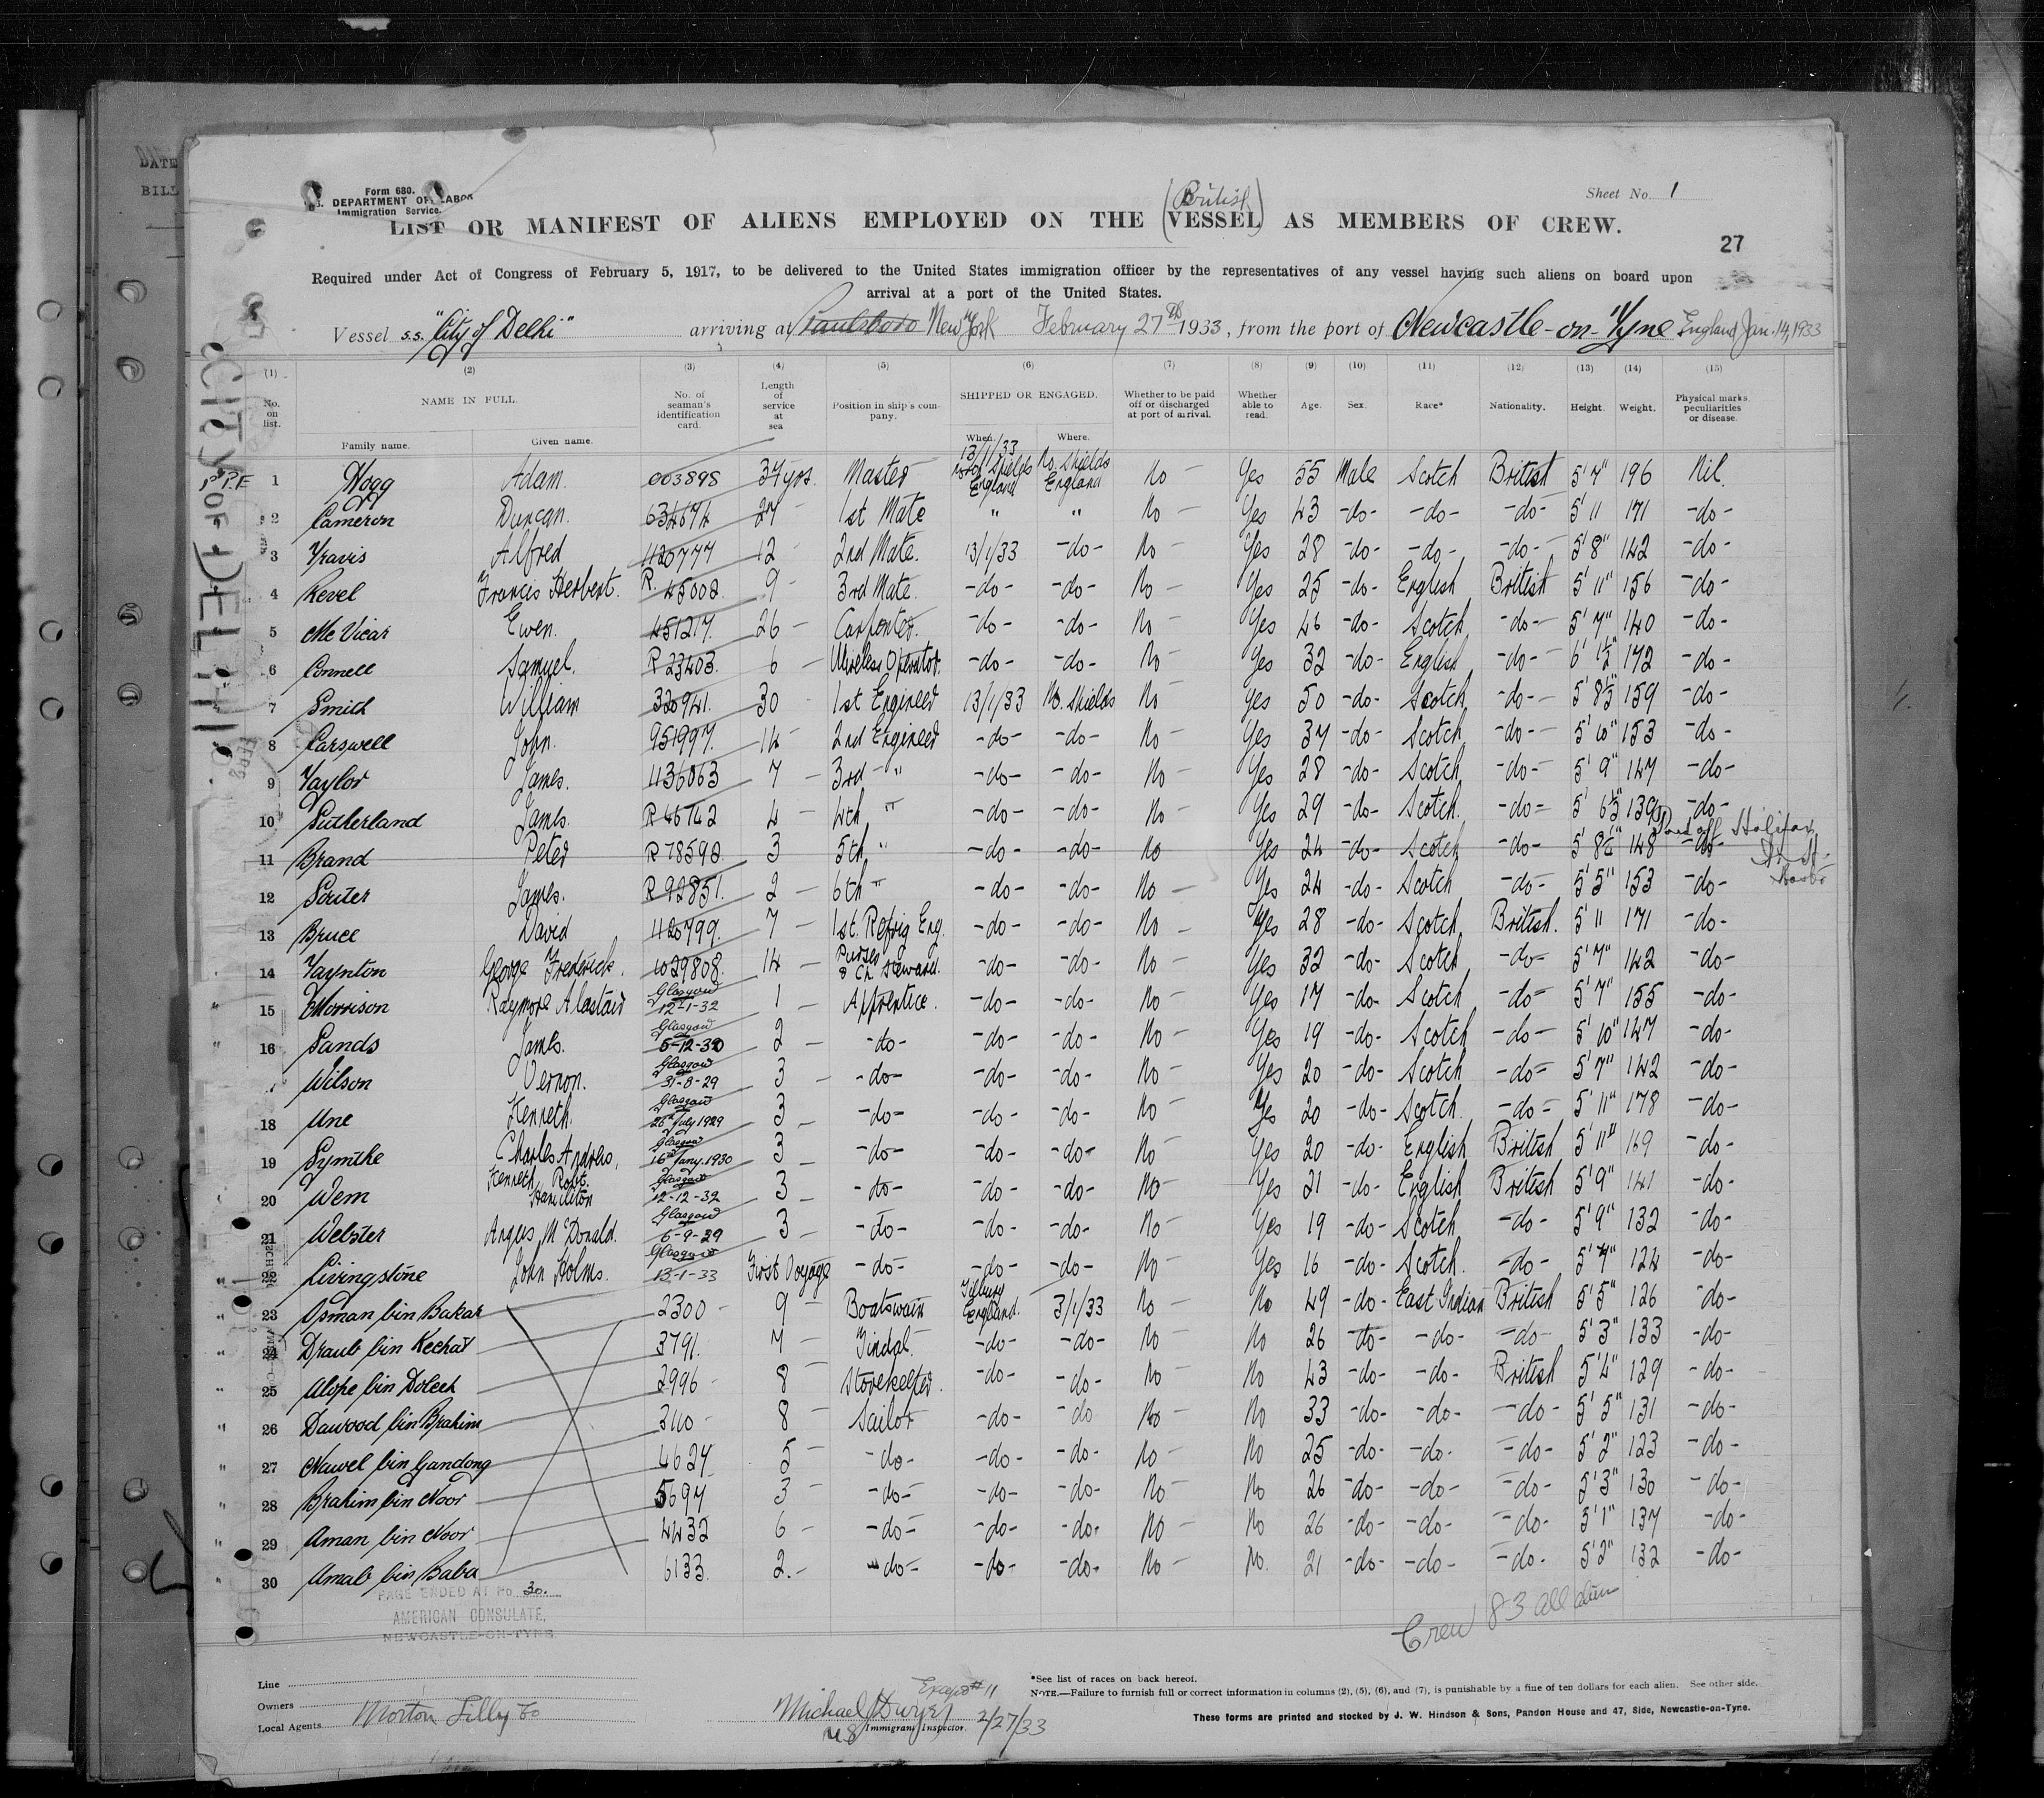 DATE
BILL
Form 680.
DEPARTMENT OF LABOR
Immigration Service.
Sheet No. 1
(British)
LIST OR MANIFEST OF ALIENS EMPLOYED ON THE (VESSEL) AS MEMBERS OF CREW.
27
Required under Act of Congress of February 5, 1917, to be delivered to the United States immigration officer by the representatives of any vessel having such aliens on board upon
arrival at a port of the United States.
Vessel s.s. "City of Delhi" arriving at Paulsboro New York February 27th 1933, from the port of Newcastle-on-Tyne England Jan. 14, 1933
CITY OF DELHI
(1) (2) (3) (4) (5) (6) (7) (8) (9) (10) (11) (12) (13) (14) (15)
No. on list. NAME IN FULL. Family name. Given name. No. of seaman's identification card. Length of service at sea Position in ship's company. SHIPPED OR ENGAGED. When. Where. Whether to be paid off or discharged at port of arrival. Whether able to read. Age. Sex. Race* Nationality. Height. Weight. Physical marks, peculiarities or disease.
1 Hogg Adam. 003898 37 yrs. Master 13/1/33 No. Shields England No. Shields England No Yes 55 Male Scotch British 5'7" 196 Nil.
2 Cameron Duncan. 634674 27 1st Mate " " No Yes 43 -do- -do- -do- 5'11 171 -do-
3 Travis Alfred 1120777 12 2nd Mate. 13/1/33 -do- No Yes 28 -do- -do- -do- 5'8" 142 -do-
4 Revel Francis Herbert. R. 45008 9 3rd Mate. -do- -do- No Yes 25 -do- English British 5'11" 156 -do-
5 McVicar Ewen. 451217. 26 Carpenter. -do- -do- No Yes 46 -do- Scotch -do- 5'7" 140 -do-
6 Connell Samuel. R 23403. 6 Wireless Operator. -do- -do- No Yes 32 -do- English -do- 6' 1½" 172 -do-
7 Smith William 320941. 30 1st Engineer 13/1/33 No. Shields No Yes 50 -do- Scotch -do- 5' 8½" 159 -do-
8 Carswell John. 951997. 14 2nd Engineer -do- -do- No Yes 37 -do- Scotch -do- 5'10" 153 -do-
9 Taylor James. 1136063 7 3rd " -do- -do- No Yes 28 -do- Scotch -do- 5'9" 147 -do-
10 Sutherland James. R 46742 4 4th " -do- -do- No Yes 29 -do- Scotch. -do- 5' 6½" 139 -do-
Paid off Halifax
11 Brand Peter R 78598 3 5th " -do- -do- No Yes 24 -do- Scotch -do- 5' 8½" 148 -do-
12 Souter James. R 92851. 2 6th " -do- -do- No Yes 24 -do- Scotch -do- 5'5" 153 -do-
13 Bruce David 1120799. 7 1st. Refrig Eng. -do- -do- No Yes 28 -do- Scotch British. 5'11 171 -do-
14 Taynton George Frederick. 1029808. 14 Purser & Ch. Steward. -do- -do- No Yes 32 -do- Scotch -do- 5'7" 142 -do-
15 Morrison Raymore Alastair Glasgow 12-1-32 1 Apprentice. -do- -do- No Yes 17 -do- Scotch -do- 5'7" 155 -do-
16 Sands James. Glasgow 5-12-30 2 -do- -do- -do- No Yes 19 -do- Scotch -do- 5'10" 147 -do-
Wilson Vernon. Glasgow 31-8-29 3 -do- -do- -do- No Yes 20 -do- Scotch -do- 5'7" 142 -do-
18 Une Kenneth. Glasgow 26th July 1929 3 -do- -do- -do- No Yes 20 -do- Scotch. -do- 5'11" 178 -do-
19 Symthe Charles Andrew. Glasgow 16th Jany. 1930 3 -do- -do- -do- No Yes 20 -do- English British 5'11" 169 -do-
20 Wem Kenneth Robt. Hamilton Glasgow 12-12-32 3 -do- -do- -do- No Yes 21 -do- English British 5'9" 141 -do-
21 Webster Angus McDonald. Glasgow 6-9-29 3 -do- -do- -do- No Yes 19 -do- Scotch -do- 5'9" 132 -do-
22 Livingstone John Holms. Glasgow 13-1-33 First Voyage -do- -do- -do- No Yes 16 -do- Scotch. -do- 5'7" 124 -do-
23 Osman bin Bakar 2300 9 Boatswain Tilbury England. 3/1/33 No No 49 -do- East Indian British 5'5" 126 -do-
24 Draub bin Kechat 3791. 7 Tindal. -do- -do- No No 26 -do- -do- -do- 5'3" 133 -do-
25 Alope bin Dolech 2996 8 Storekeeper. -do- -do- No No 43 -do- -do- British 5'4" 129 -do-
26 Dawood bin Brahim 3110 8 Sailor -do- -do No No 33 -do- -do- -do- 5'5" 131 -do-
27 Nawel bin Gandong 4627 5 -do- -do- -do- No No 25 -do- -do- -do- 5'2" 123 -do-
28 Brahim bin Noor 5697 3 -do- -do- -do- No No 26 -do- -do- -do- 5'3" 130 -do-
29 Aman bin Noor 4432 6 -do- -do- -do- No No 26 -do- -do- -do- 5'1" 137 -do-
30 Amab bin Baba 6133. 2. -do- -do- -do- No No. 21 -do- -do- -do- 5'2" 132 -do-
PAGE ENDED AT No. 30.
AMERICAN CONSULATE,
NEWCASTLE-ON-TYNE
Crew 83 all alien
Line
Owners
Local Agents Morton Lilly Co
Except #11
Michael Dwyer
Immigrant Inspector. 2/27/33
*See list of races on back hereof.
NOTE.—Failure to furnish full or correct information in columns (2), (5), (6), and (7), is punishable by a fine of ten dollars for each alien. See other side.
These forms are printed and stocked by J. W. Hindson & Sons, Pandon House and 47, Side, Newcastle-on-Tyne.